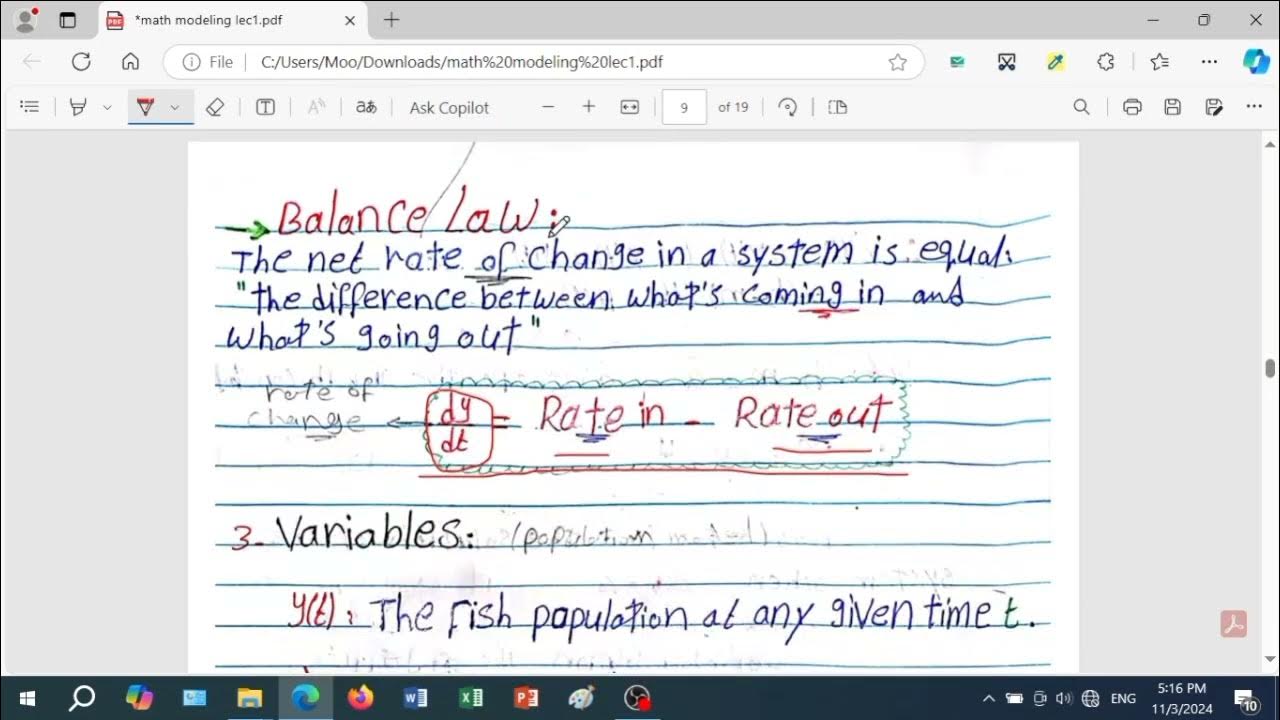 *math modeling lec1.pdf
File
C:/Users/Moo/Downloads/math%20modeling%20lec1.pdf
Ask Copilot
9
of 19
Balance Law:
The net rate of change in a system is equal:
"the difference between what's coming in and
what's going out"
rate of
change
dy/dt = Rate in - Rate out
3- Variables: (population
y(t): The fish population at any given time t.
ENG
5:16 PM
11/3/2024
10